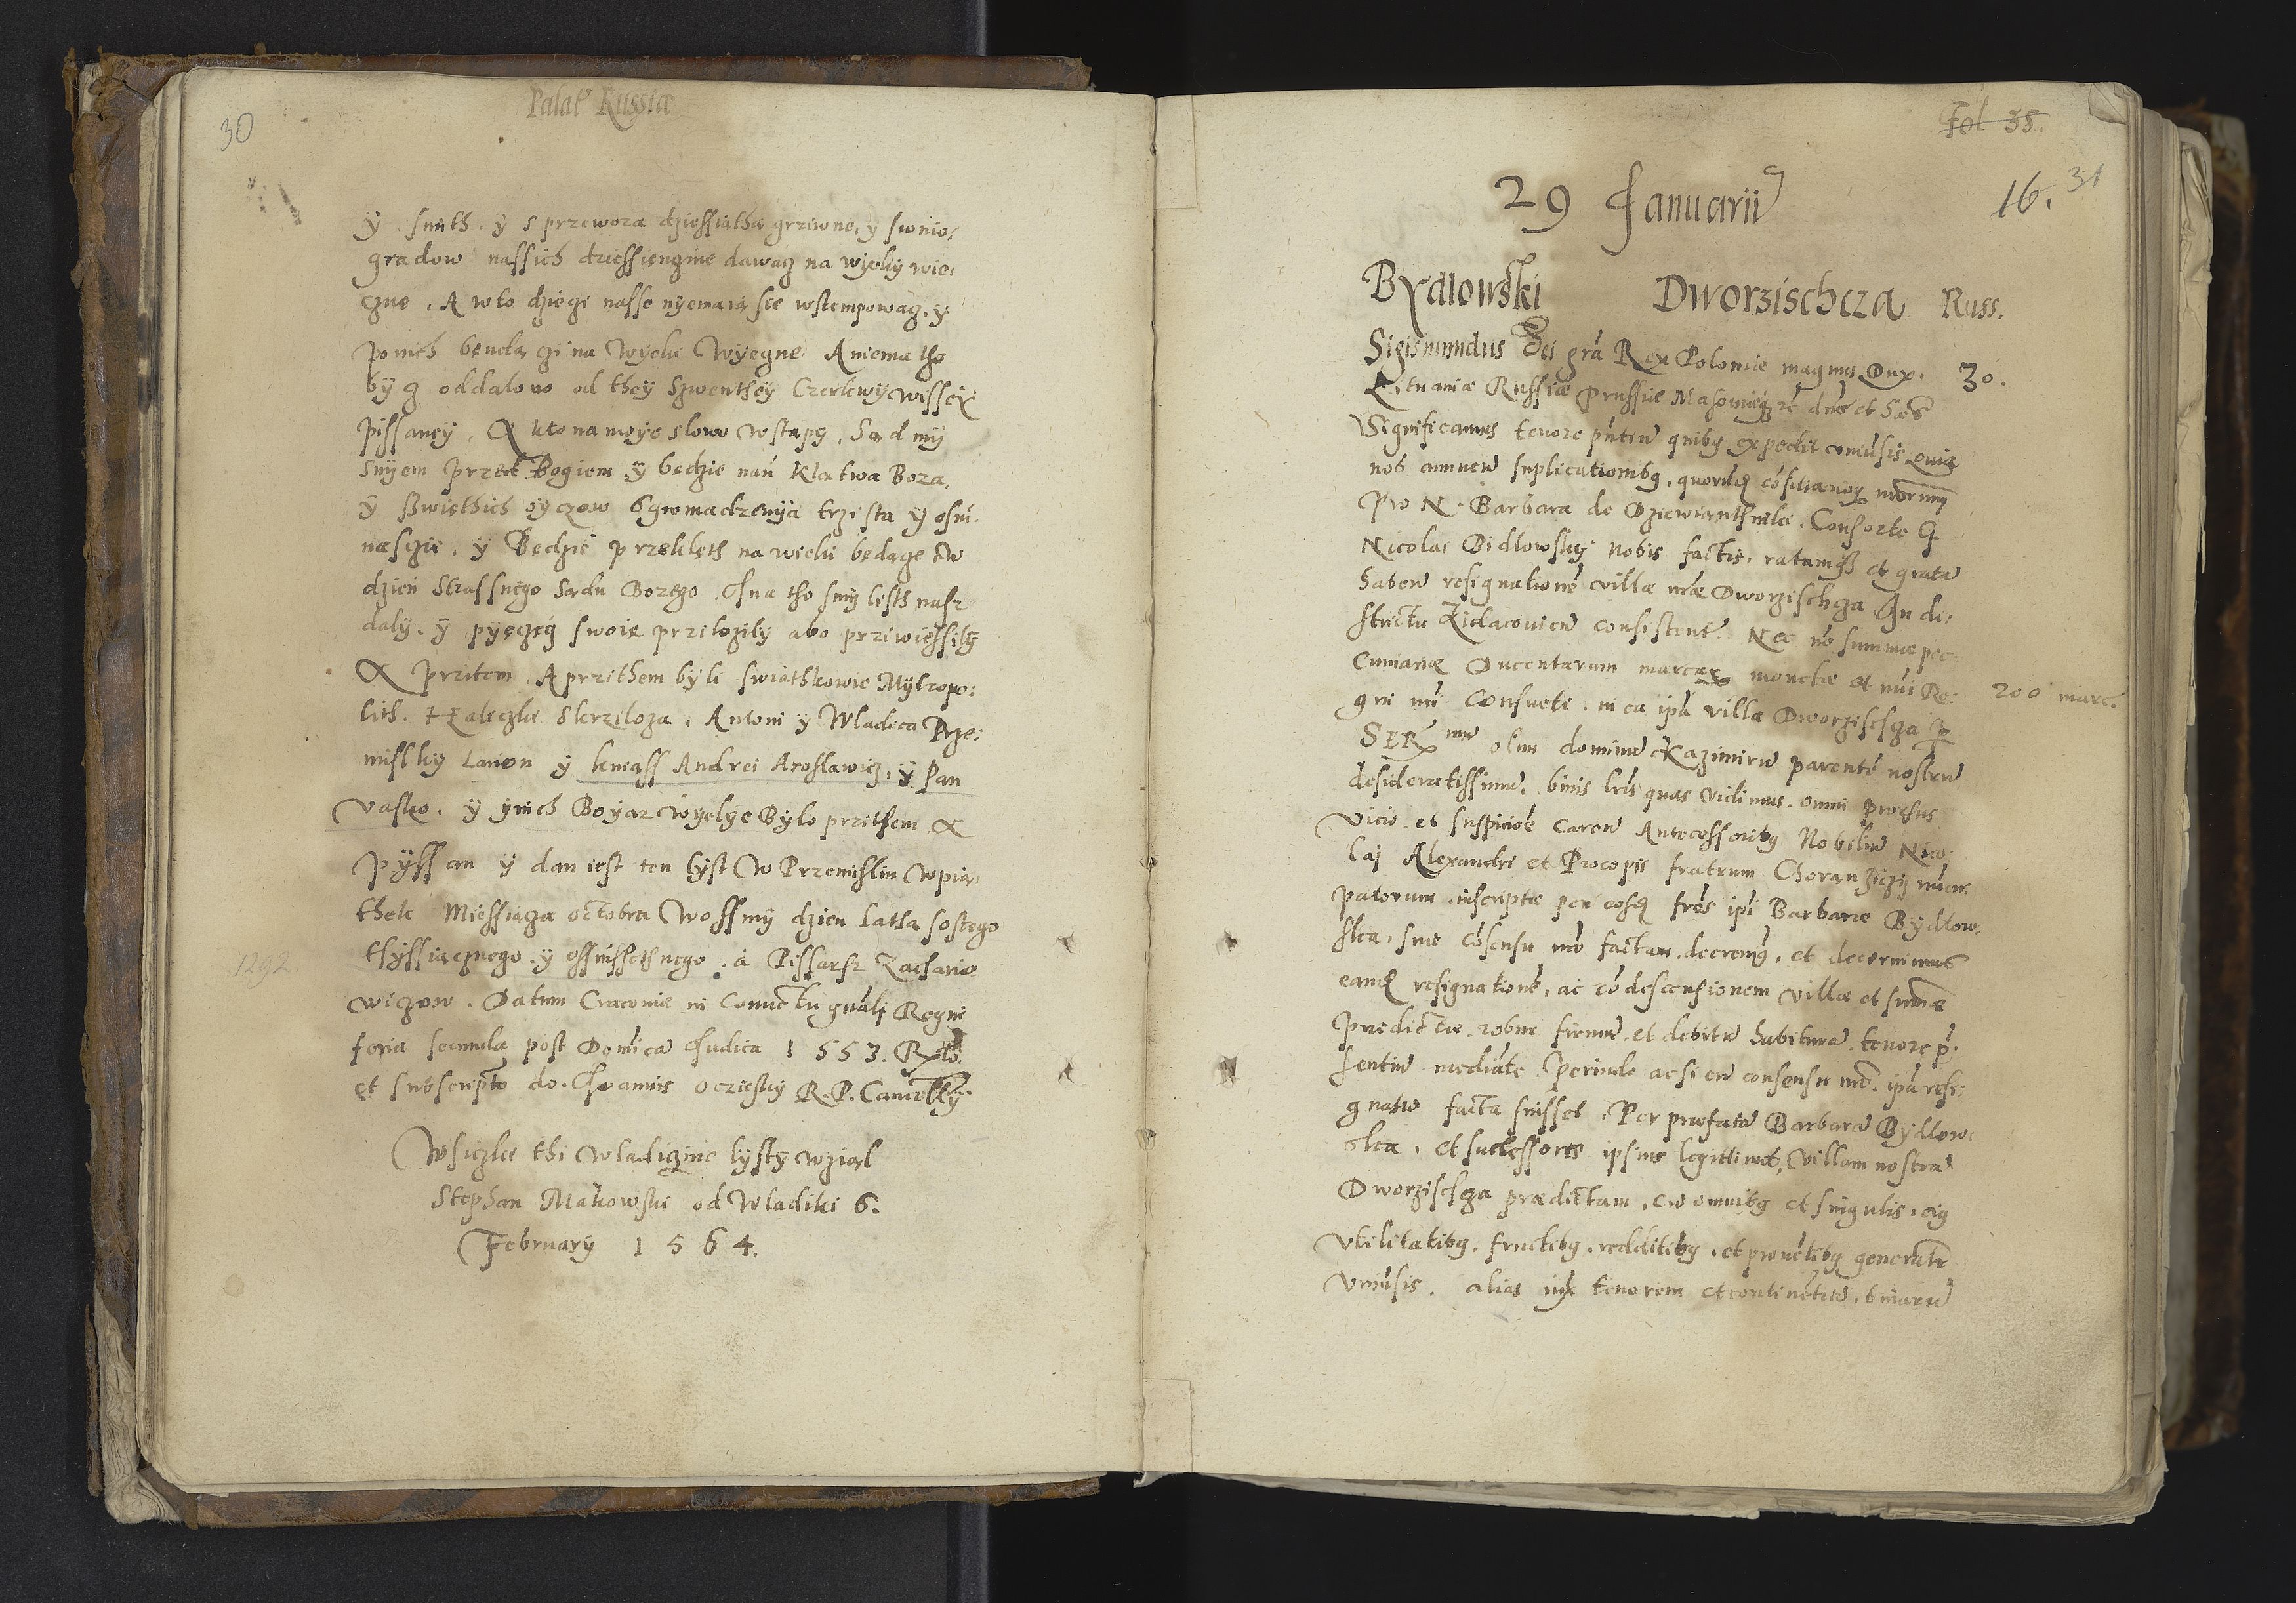 30
Palat Russiæ
ÿ snith. ÿ s przewoza dziessiątha grziwne, ÿ swnio:
gradow nassich dziessięngine dawacz na wÿeki wie:
czne. A wto dziegi nasse nÿemaią sie wstempowacz, ÿ
ponich bendą czi na wÿeki Wÿeczne. A niema tho
bÿcz oddalono od theÿ Szwentheÿ Czerkwÿ wisseÿ
pissaneÿ. A kto na moÿe slowo wstąpÿ, Sąd mÿ
snÿem przed Bogiem ÿ bedzie nań Klątwa Boza,
ÿ Swięthich oÿczow Zgromadzenÿa trzi sta ÿ osni:
nasczie. ÿ Będzie przeklęth na wieki będącze w
dzień Strassnego Sądu Bozego. Ina tho smÿ listh nasz
dalÿ. ÿ pÿeczęcz swoię prziłozilÿ abo prziwięssilÿ
A przitem. A przithem bÿli swiathkowie Mÿtropo:
lith. Halczki Skrziloza. Antoni ÿ Wladica Prze:
mislkÿ Larion ÿ kniass Andrei Aroslawicz, ÿ Pan
Vasko. ÿ ÿnich Boÿar Wÿelÿe Bÿlo przithem A
pÿssan ÿ dan iest ten lÿst W Przemislin Wpią:
thek Miessiącza octobra Wossmÿ dzien latha sostego
1292
thÿssiącznego. ÿ ossmssethnego. a Pissarsz Zachario
wiczow. Datum Cracoviæ in Conuctu gnali Regni
feria secunda post Domica Iudica 1553. Rxto
et subscripto do. Ioannis ocieskÿ R. P. Cancellÿ.
Wsiczki thi wladiczine lÿstÿ wziąl
Stephan Makowski od Wladiki 6.
Februarÿ 1564.
Fol 35.
16. 31
29 Januarii
Bydlowski Dworzischcza Russ.
Sigismundus Dei gra Rex Polonie magnus Dux. 30.
Lituaniæ Russiæ Prussiæ Masouieqz rc dns et hæs
Significamus tenore pntiu quibq expedit vniusis quia
nos annuen suplicationibq, quorudq cosiliarioq nrorum
pro N. Barbara de Dziewianthniki. Consorte G.
Nicolai Bidlowskÿ nobis factis, ratamqz et grata
haben resignatione villæ nræ Dworzischcza In di:
strictu Zidacouien consistent. Nec no summæ pec:
cuniariæ Ducentarum marcar monetæ et nui Re: 200 marc.
gni nri Consuete. in ea ipa villa Dworzischcza p
SERmu olim dominu Kazimiru parente nostru
desideratissimu, binis lris quas vidimus. omni prorsus
vicio et suspicioe caren Antecessoribq Nobiliu Nico
laj Alexandri et Procopii fratrum Choranziczÿ nun
patorum inscriptæ per eosdq fres ipi Barbaræ Bydlow:
ska, sine cosensu nro factam, decreuimq, et decernimus
eandq resignatione, ac codescensionem villæ et sumæ
predictæ. robur firmu et debitu habitura. tenore p.
sentiu mediate. Perinde ac si cu consensu nro. ipa resi:
gnatio facta fuisset. Per prefata Barbara Bydlow:
ska, et successores ipsius legittimos, Villam nostra
Dworzischcza prædictam, cu omnibq et singulis, eiq
vtilitatibq. fructibq. redditibq. et prouetibq generatr
vniusis. alias iux tenorem et continetia. binaru